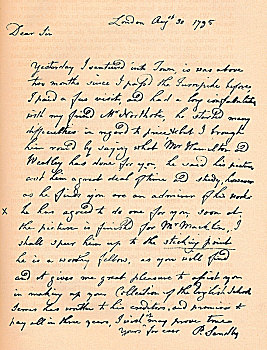 London Augst 30 1795
Dear Sir
Yesterday I ventured into Town is was above
ten months since I pass'd the Turnpike before
I paid a few visits, and had a long confabulation
with my friend Mr Northcote, he started many
difficulties in regard to price but I brought
him round by saying what Mr Hamilton &
Wheatley had done for you he said his picture
cost him a great deal of time & study, however
as he finds you are an admirer of his works
x he has agreed to do one for you soon as
the picture is finish'd for Mr Macklin, I
shall spur him up to the sticking point
he is a worthy fellow, as you will find
and it gives me great pleasure to assist you
in making up your Collection of the English School
Serres has written to his Creditors, and promises to
pay all in three years, I wish may prove true
Yours for ever P. Sandby